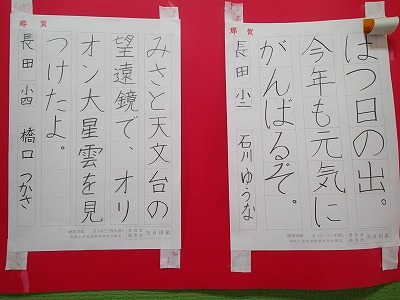 賀
はつ日の出。
今年も元気に
がんばるぞ。
長田 小二 石川 ゆうな
賀
みさと天文台の
望遠鏡で、オリ
オン大星雲を見
つけたよ。
長田 小四 橋口 つかさ